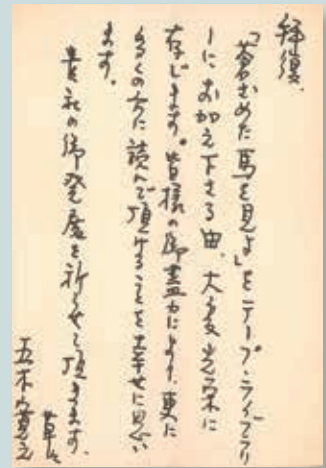 拝復、
「蒼ざめた馬を見よ」をテープ・ライブラリ
ーにお加え下さる由、大変光栄に
存じます。皆様の御尽力により、更に
多くの方に読んで頂けることを幸せに思い
ます。
貴社の御発展を祈らせて頂きます。
草々
五木寛之